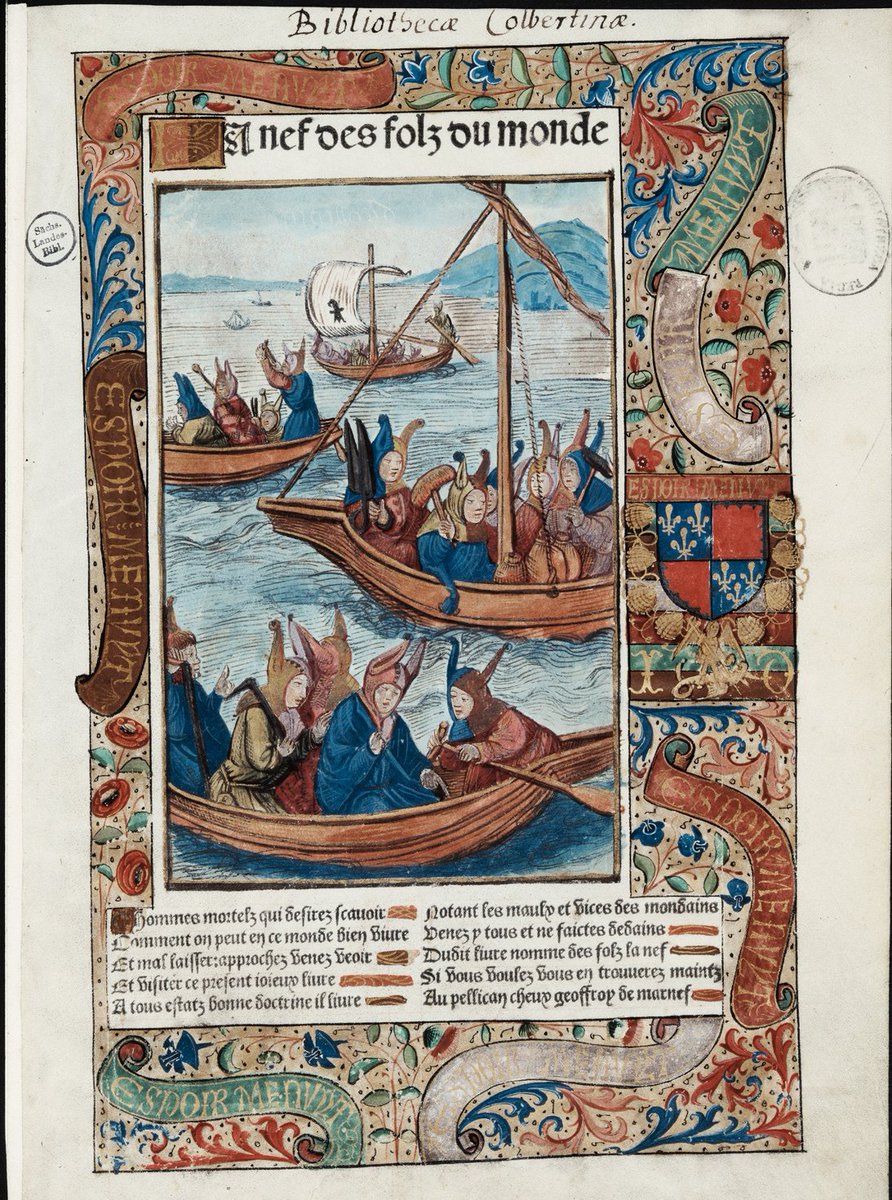 Bibliothecæ Colbertinæ.
ESPOIR MENUYT
La nef des folz du monde
MENUYT
ESPOIR
Sächs.
Landes-
Bibl.
ESPOIR MENUYT
ESPOIR MENUYT
O hommes mortelz qui desirez scauoir
Comment on peut en ce monde bien viure
Et mal laisser: approchez venez veoir
Et visiter ce present ioieux liure
A tous estatz bonne doctrine il liure
Notant les maulx et vices des mondains
Venez y tous et ne faictes dedains
Dudit liure nomme des folz la nef
Si vous voulez vous en trouuerez maintz
Au pellican cheux geoffroy de marnef
ESPOIR MENUYT
ESPOIR MENUYT